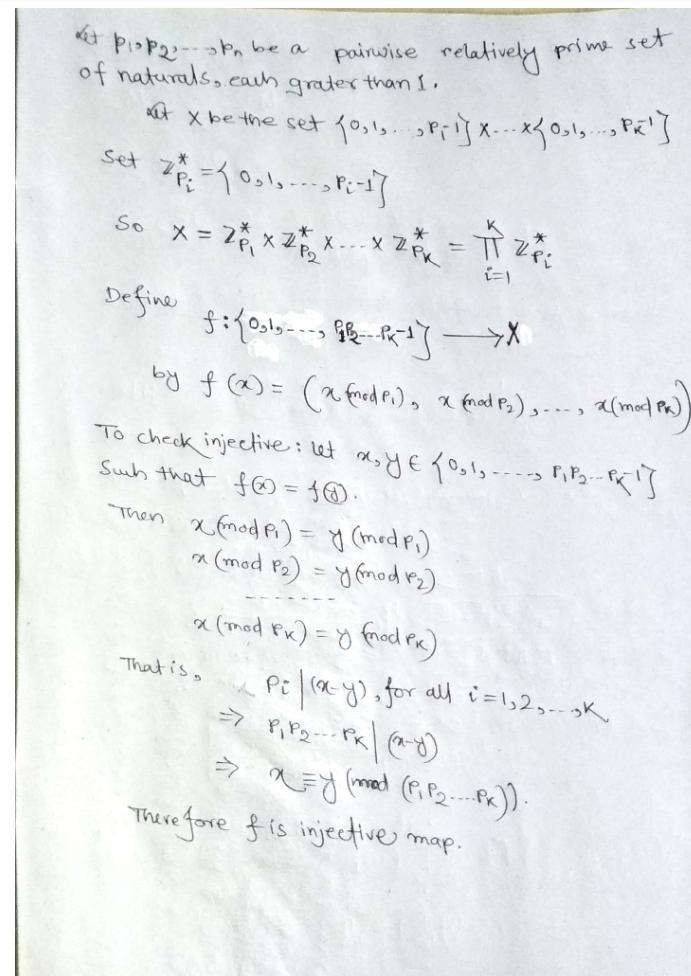 Let p₁, p₂, ..., pₙ be a pairwise relatively prime set
of naturals, each grater than 1.
Let X be the set {0,1, ..., P₁-1} X ... X {0,1, ..., Pₖ-1}
Set Z*_{Pᵢ} = {0,1, ..., Pᵢ-1}
So X = Z*_{P₁} X Z*_{P₂} X ... X Z*_{Pₖ} = ∏_{i=1}^{K} Z*_{Pᵢ}
Define
f : {0,1, ..., P₁P₂...Pₖ-1} ⟶ X
by f(x) = (x (mod P₁), x (mod P₂), ..., x (mod Pₖ))
To check injective : let x, y ∈ {0,1, ..., P₁P₂...Pₖ-1}
Such that f(x) = f(y).
Then x (mod P₁) = y (mod P₁)
x (mod P₂) = y (mod P₂)
-------
x (mod Pₖ) = y (mod Pₖ)
That is, Pᵢ | (x-y), for all i=1,2,...,K
⇒ P₁P₂...Pₖ | (x-y)
⇒ x ≡ y (mod (P₁P₂....Pₖ)).
Therefore f is injective map.